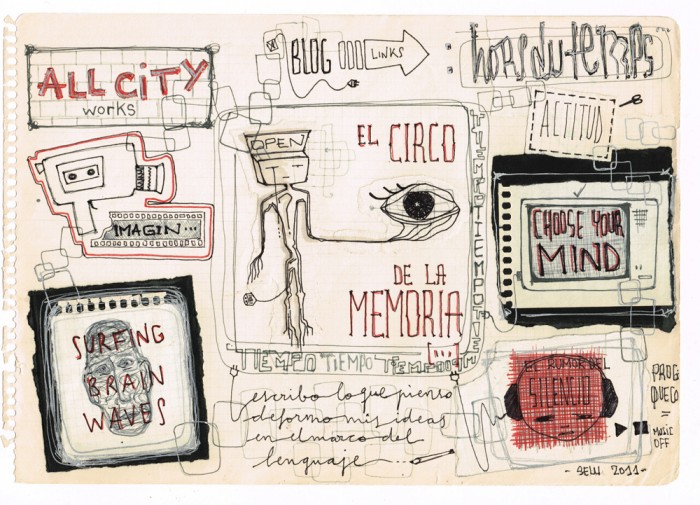 ALL CiTY
works
BLOG
LINKS
horsdutemps
ACTITUD
OPEN
EL CIRCO
DE LA
MEMORIA
[...]
IMAGIN...
CHOOSE YOUR
MIND
SURFING
BRAIN
WAVES
TIEMPO TIEMPO TIEMPO
escribo lo que pienso
deformo mis ideas
en el marco del
lenguaje
EL RUMOR DEL
SILENCIO
MUSIC
OFF
2011-